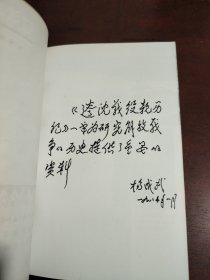 《辽沈战役亲历
记》一书为研究解放战
争的历史提供了重要的
资料
杨成武
一九八五年一月